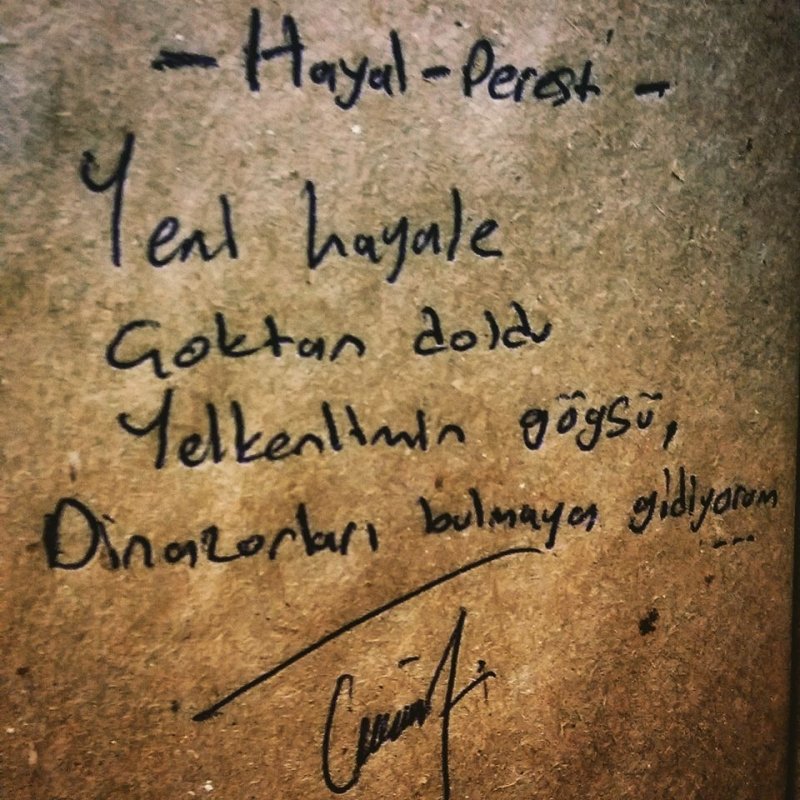 - Hayal-Perest -
Yeni hayale
Çoktan doldu
Yelkenlimin göğsü,
Dinazorları bulmaya gidiyorum
---